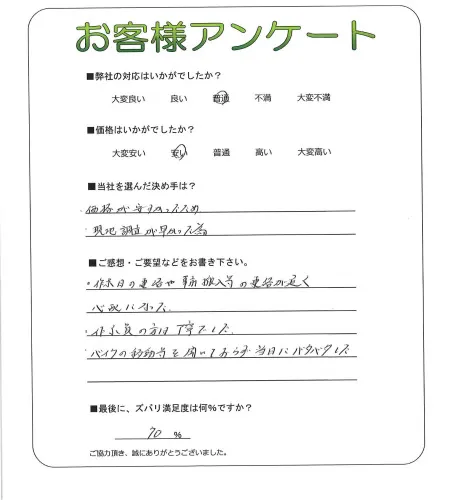 お客様アンケート
■弊社の対応はいかがでしたか？
大変良い 良い 普通 不満 大変不満
■価格はいかがでしたか？
大変安い 安い 普通 高い 大変高い
■当社を選んだ決め手は？
・価格が安かったため
・現地調査が早かった為
■ご感想・ご要望などをお書き下さい。
・作業日の連絡や事前搬入等の連絡が遅く
心配になった
・作業員の方は丁寧でした
・バイクの移動等を聞いておらず当日にバタバタした
■最後に、ズバリ満足度は何％ですか？
70 ％
ご協力頂き、誠にありがとうございました。